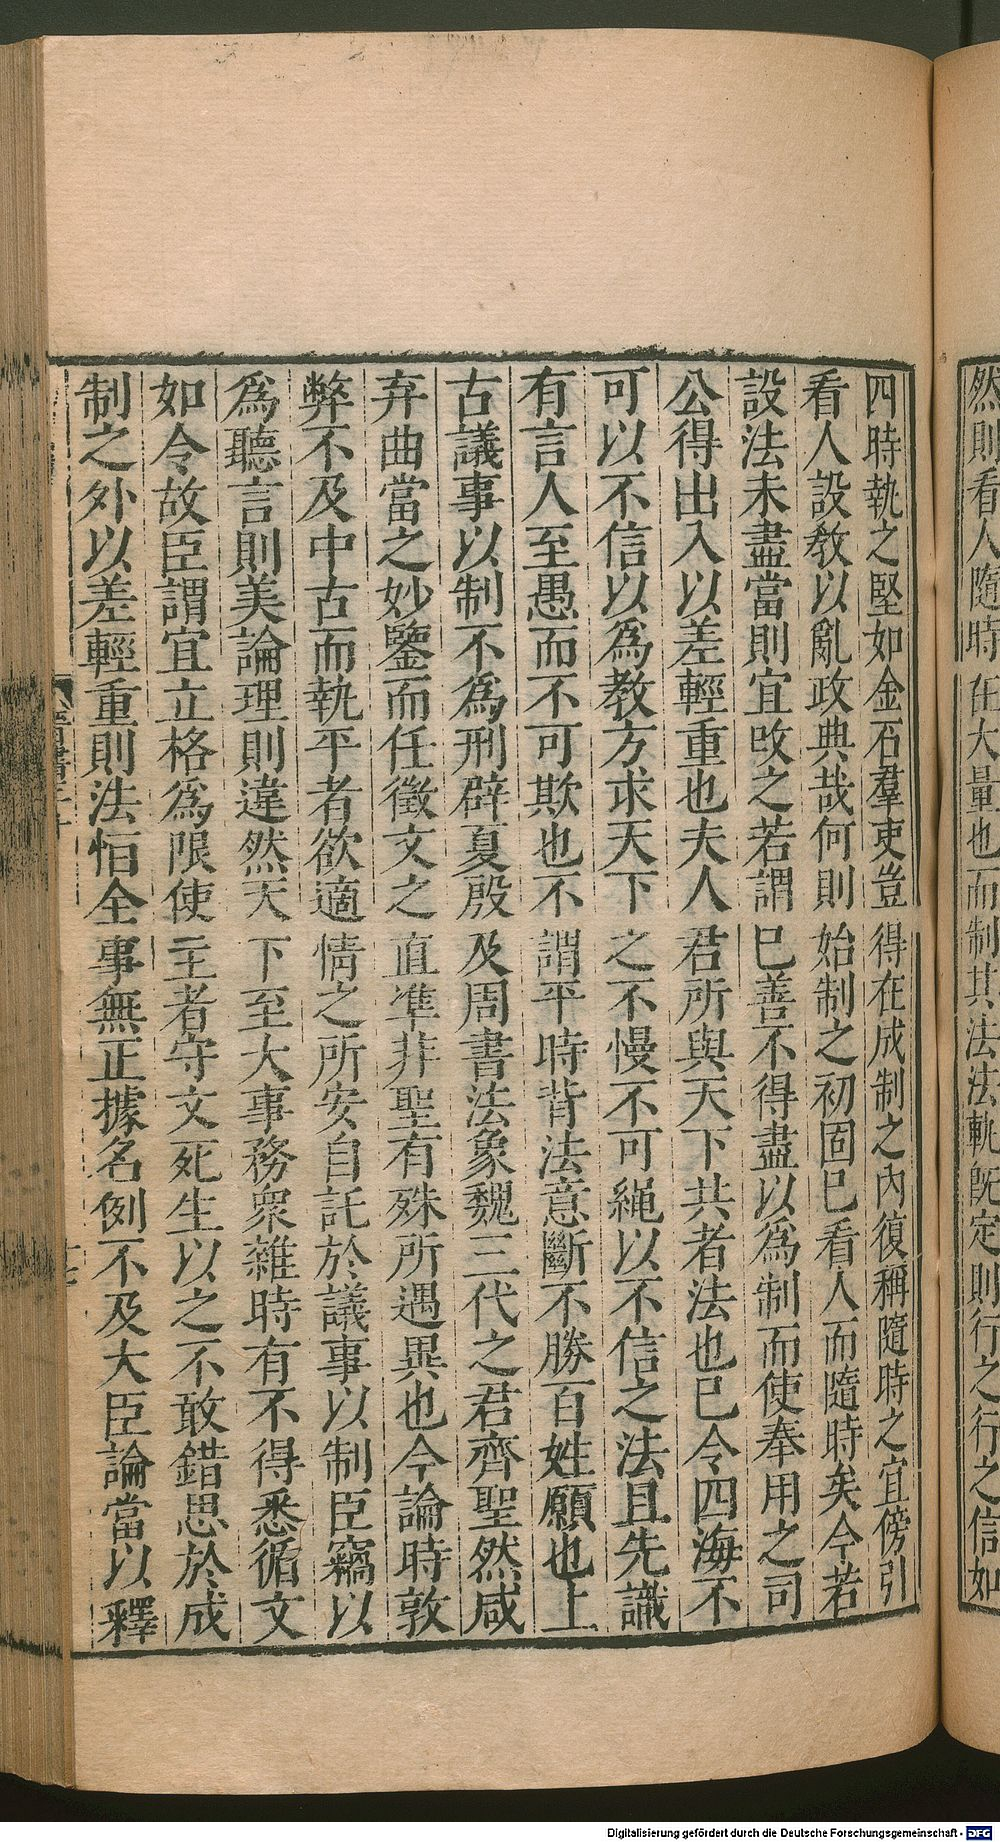 然則看人隨時在大量也而制其法法軌既定則行之行之信如
四時執之堅如金石羣吏豈得在成制之內復稱隨時之宜傍引
看人設教以亂政典哉何則始制之初固已看人而隨時矣今若
設法未盡當則宜改之若謂已善不得盡以爲制而使奉用之司
公得出入以差輕重也夫人君所與天下共者法也已令四海不
可以不信以爲教方求天下之不慢不可繩以不信之法且先識
有言人至愚而不可欺也不謂平時背法意斷不勝百姓願也上
古議事以制不爲刑辟夏殷及周書法象魏三代之君齊聖然咸
弃曲當之妙鑒而任徵文之直準非聖有殊所遇異也今論時敦
弊不及中古而執平者欲適情之所安自託於議事以制臣竊以
爲聽言則美論理則違然天下至大事務衆雜時有不得悉循文
如令故臣謂宜立格爲限使主者守文死生以之不敢錯思於成
制之外以差輕重則法恒全事無正據名例不及大臣論當以釋
晉書三十
十七
Digitalisierung gefördert durch die Deutsche Forschungsgemeinschaft - DFG